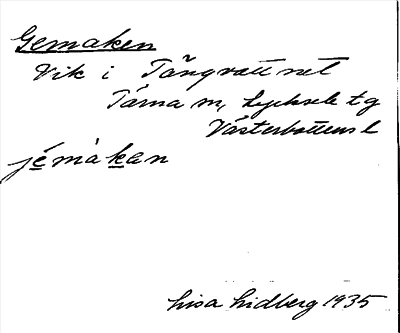 Gemaken
Vik i Tängvattnet
Tärna sn, Lycksele tg
Västerbottens l
jémàkan
Lisa Lidberg 1935